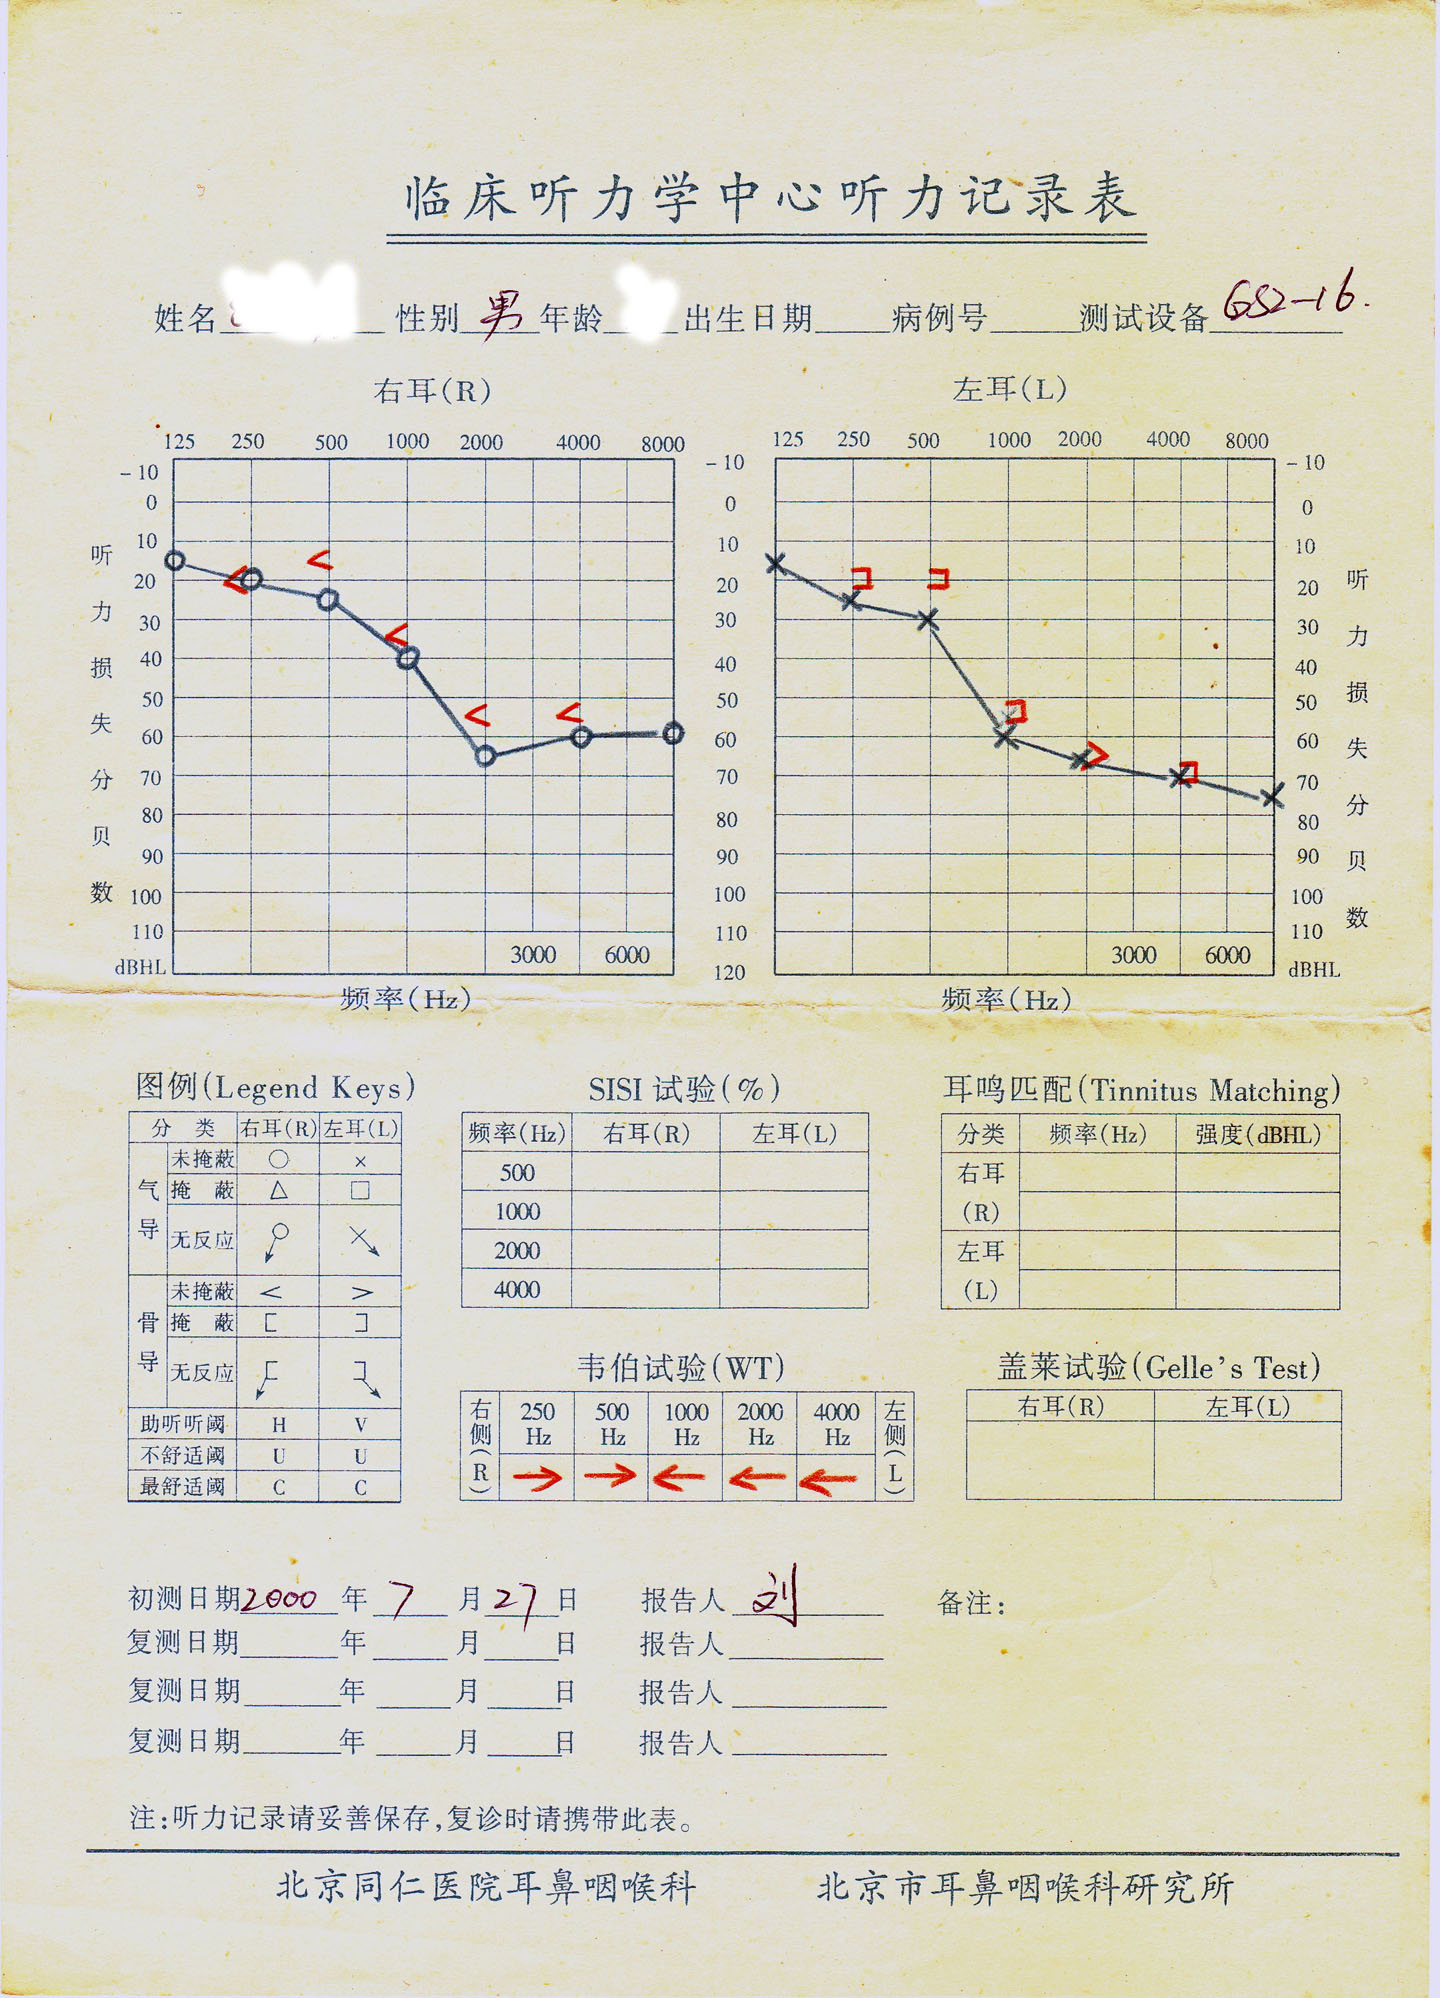 临床听力学中心听力记录表
姓名 性别 男 年龄 出生日期 病例号 测试设备 GSI-16.
右耳(R) 左耳(L)
125 250 500 1000 2000 4000 8000 125 250 500 1000 2000 4000 8000
-10 -10 -10
0 0 0
10 10 10
20 20 20
30 30 30
40 40 40
50 50 50
60 60 60
70 70 70
80 80 80
90 90 90
100 100 100
110 110 110
dBHL 120 dBHL
听力损失分贝数 听力损失分贝数
3000 6000 3000 6000
频率(Hz) 频率(Hz)
图例(Legend Keys)
分类 右耳(R) 左耳(L)
气导
未掩蔽 ○ ×
掩蔽 △ □
无反应
骨导
未掩蔽 < >
掩蔽 [ ]
无反应
助听听阈 H V
不舒适阈 U U
最舒适阈 C C
SISI 试验(%)
频率(Hz) 右耳(R) 左耳(L)
500
1000
2000
4000
耳鸣匹配(Tinnitus Matching)
分类 频率(Hz) 强度(dBHL)
右耳
(R)
左耳
(L)
韦伯试验(WT)
右侧(R) 250 Hz 500 Hz 1000 Hz 2000 Hz 4000 Hz 左侧(L)
→ → ← ← ←
盖莱试验(Gelle's Test)
右耳(R) 左耳(L)
初测日期 2000 年 7 月 27 日 报告人 刘 备注:
复测日期 年 月 日 报告人
复测日期 年 月 日 报告人
复测日期 年 月 日 报告人
注:听力记录请妥善保存,复诊时请携带此表。
北京同仁医院耳鼻咽喉科 北京市耳鼻咽喉科研究所